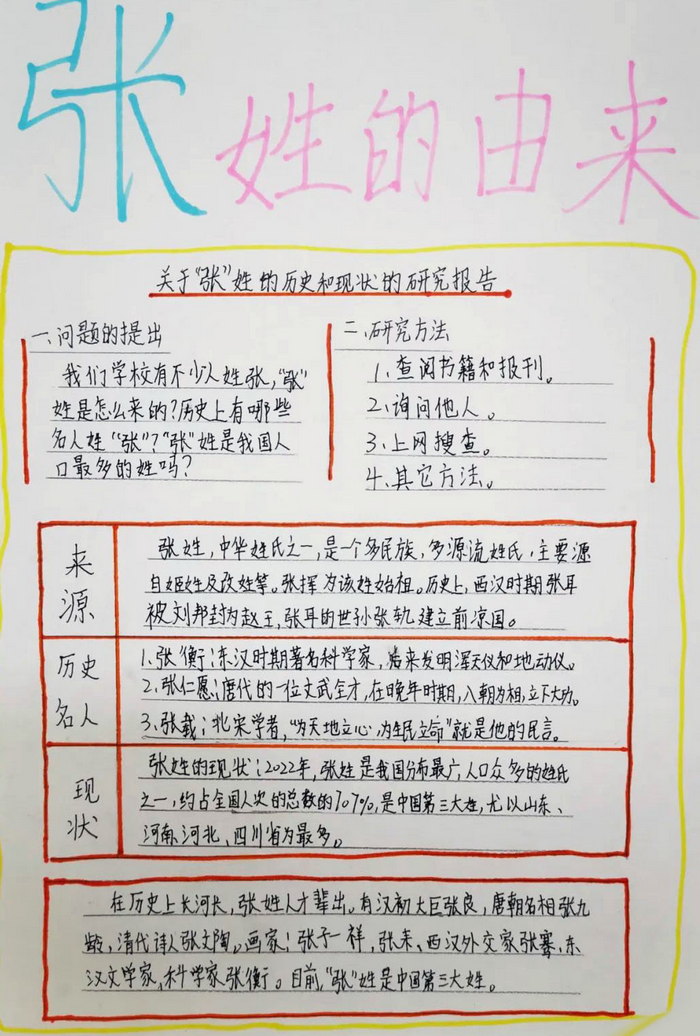 张姓的由来
关于"张"姓的历史和现状的研究报告
一.问题的提出
我们学校有不少人姓张,"张"
姓是怎么来的?历史上有哪些
名人姓"张"?"张"姓是我国人
口最多的姓吗?
二.研究方法
1.查阅书籍和报刊。
2.询问他人。
3.上网搜查。
4.其它方法。
来源
张姓,中华姓氏之一,是一个多民族,多源流姓氏,主要源
自姬姓及改姓等。张挥为该姓始祖。历史上,西汉时期张耳
被刘邦封为赵王,张耳的世孙张轨建立前凉国。
历史名人
1.张衡:东汉时期著名科学家,后来发明浑天仪和地动仪。
2.张仁愿:唐代的一位文武全才,在晚年时期,入朝为相,立下大功。
3.张载:北宋学者,"为天地立心,为生民立命"就是他的名言。
现状
张姓的现状:2022年,张姓是我国分布最广,人口众多的姓氏
之一,约占全国人次的总数的7.07%,是中国第三大姓,尤以山东、
河南、河北、四川省为最多。
在历史上长河长,张姓人才辈出。有汉初大臣张良,唐朝名相张九
龄,清代诗人张文陶。画家:张子祥,张未、西汉外交家张骞、东
汉文学家,科学家张衡。目前,"张"姓是中国第三大姓。